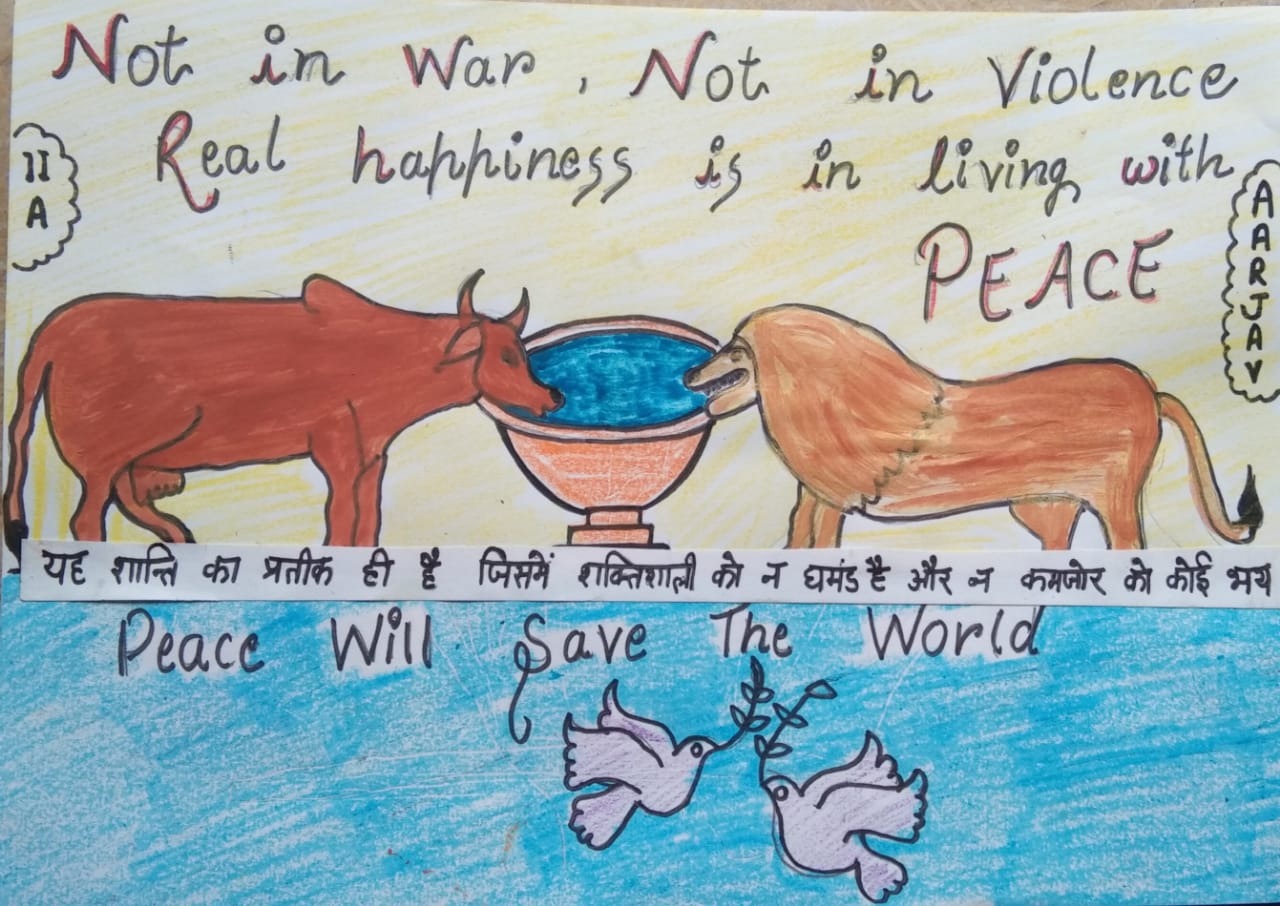 Not in War, Not in Violence
Real happiness is in living with
PEACE
II
A
AARJAV
यह शान्ति का प्रतीक ही है जिसमें शक्तिशाली को न घमंड है और न कमजोर को कोई भय
Peace Will Save The World